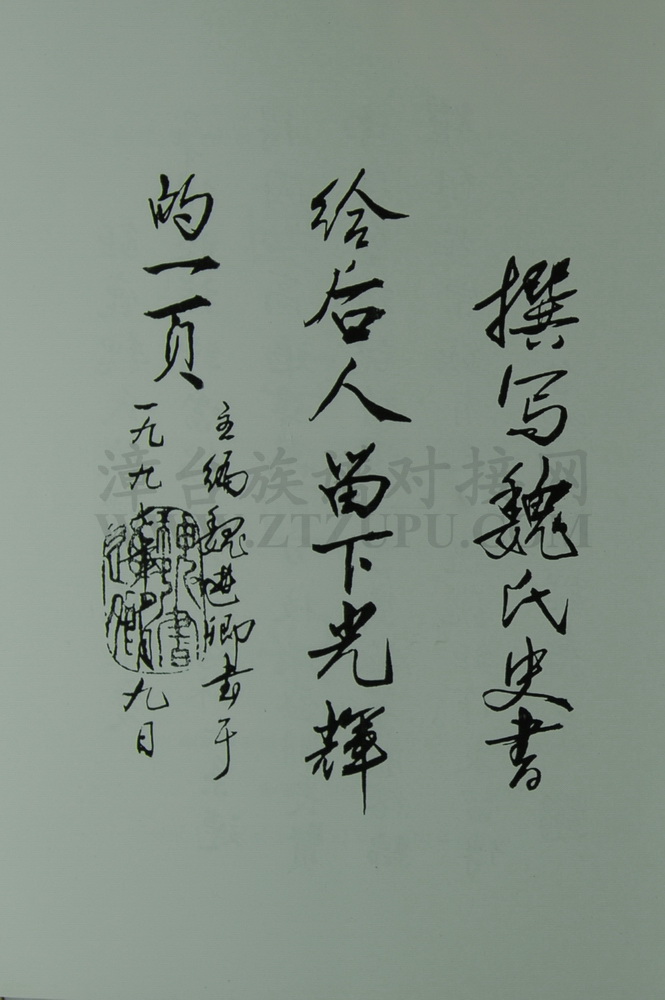 撰写魏氏史书
给后人留下光輝
的一页
主编魏进卿书于
一九九七年 月九日
漳台族谱对接网
WWW.ZTZUPU.COM